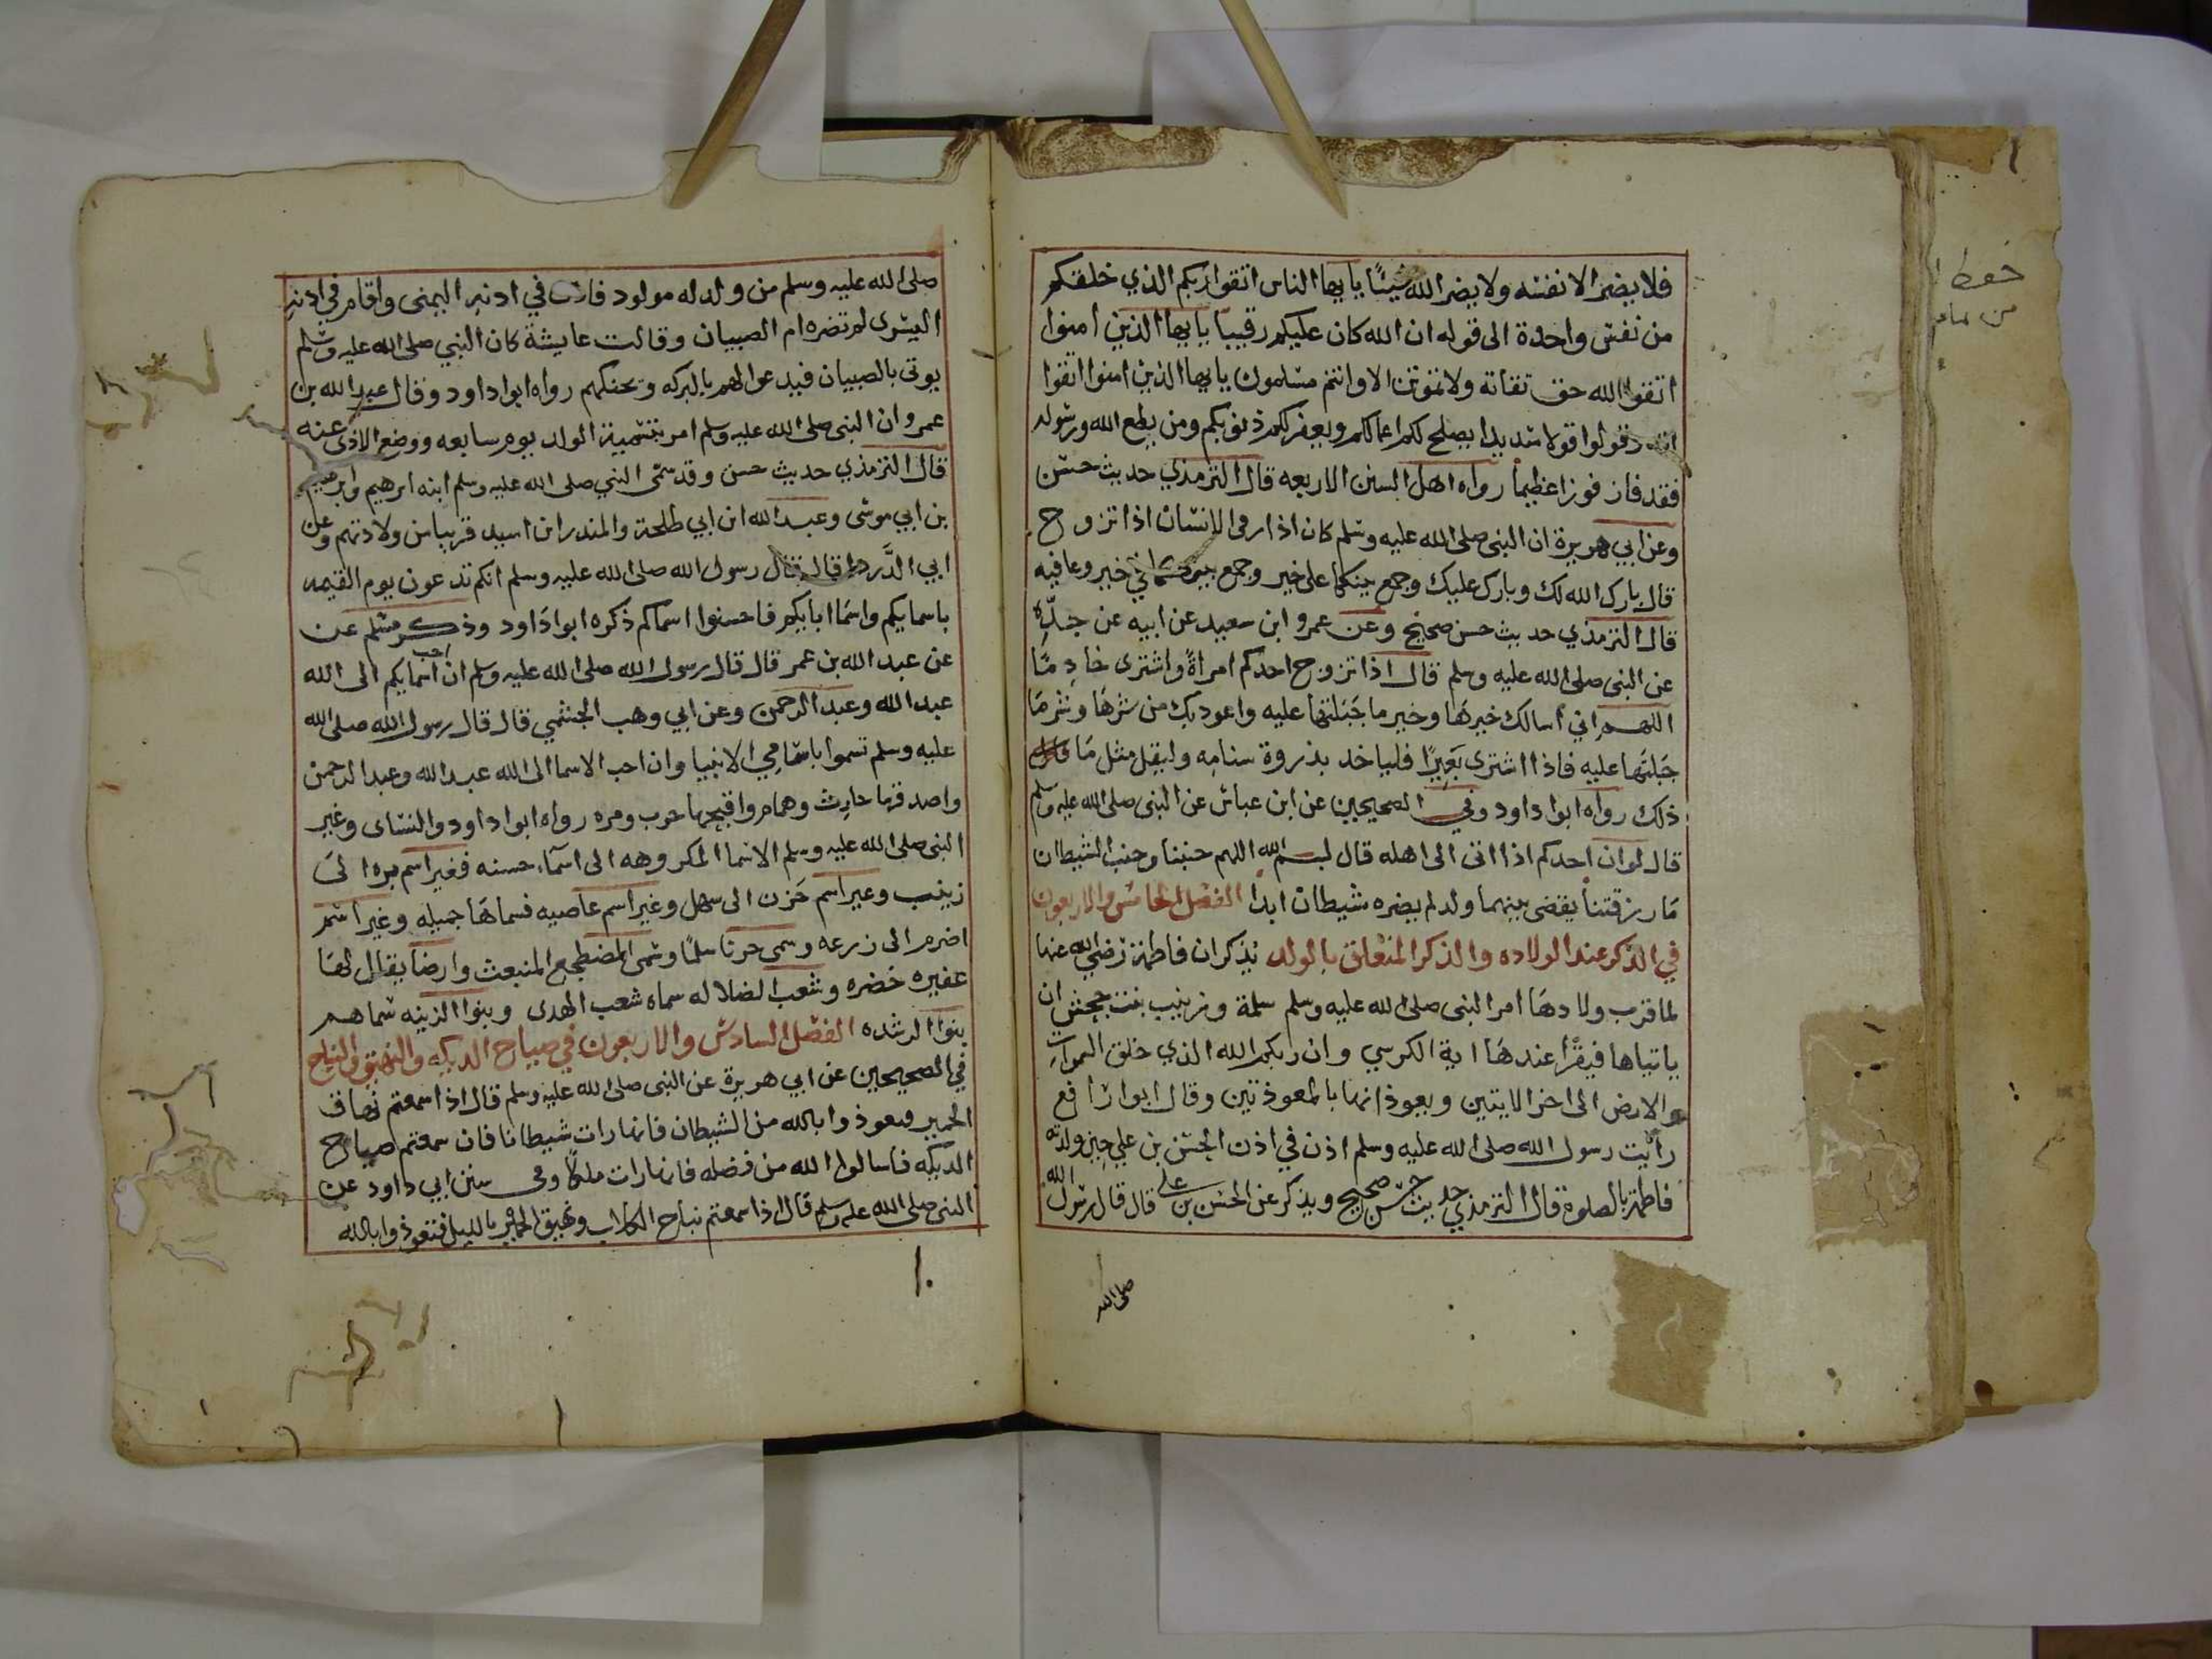 فلا يضر الا نفسه ولا يضر الله شيئًا يا يها الناس اتقوا ربكم الذي خلقكم
من نفس واحدة الى قوله ان الله كان عليكم رقيبا يا يها الذين امنوا
اتقوا الله حق تقاته ولا تموتن الا وانتم مسلمون يا يها الذين امنوا اتقوا
الله وقولوا قولا سديدا يصلح لكم اعمالكم ويغفر لكم ذنوبكم ومن يطع الله ورسوله
فقد فاز فوزا عظيما رواه اهل السنن الاربعه قال الترمذي حديث حسن
وعن ابي هريرة ان النبى صلى الله عليه وسلم كان اذا رفى الانسان اذا تزوج
قال بارك الله لك وبارك عليك وجمع بينكما على خير وجمع في خير وعافيه
قال الترمذي حديث حسن صحيح وعن عمرو ابن سعيد عن ابيه عن جدِّه
عن النبى صلى الله عليه وسلم قال اذا تزوج احدكم امراةً واشترى خادِمًا
اللهم اني أسالك خيرها وخير ما جَبَلتها عليه واعوذ بك من شرها وشر مَا
جَبَلتَها عليه فاذا اشترى بَعيرًا فلياخد بذروة سنامه وليقل مثل مَا
ذلك رواه ابوا داود وفي الصحيحين عن ابن عباس عن النبى صلى الله عليه وسلم
قال لو ان احدكم اذا اتى الى اهله قال بسم الله اللهم جنبنا وجنب الشيطان
مَا رزقتنا يقضى بينهما ولد لم يضره شيطان ابدا الفصل الخامس والاربعون
في الذكر عند الولاده والذكر المتعلق بالولد يذكر ان فاطمة رضي الله عنها
لما قرب ولادهَا امر النبى صلى الله عليه وسلم سلمة وزينب بنت جحش ان
ياتياها فيقرأ عندهَا اية الكرسي وان ربكم الله الذي خلق السموات
والارض الى اخر الايتين ويعوذانها بالمعوذتين وقال ابوا رافع
رأيت رسول الله صلى الله عليه وسلم اذن في اذن الحسن بن علي حين ولدته
فاطمة بالصلوة قال الترمذي حديث حسن صحيح ويذكر عن الحسن بن علي قال قال رسول الله
صلى الله
صلى الله عليه وسلم من ولد له مولود فاذن في ادنه اليمنى واقام في ادنه
اليسرى لم تضره ام الصبيان وقالت عايشة كان النبي صلى الله عليه وسلم
يوتى بالصبيان فيدعوا لهم بالبركه ويحنكهم رواه ابوا داود وقال عبد الله بن
عمرو ان النبى صلى الله عليه وسلم امر بتسمية الولد يوم سابعه ووضع الاذى عنه
قال الترمذي حديث حسن وقد سمى النبي صلى الله عليه وسلم ابنه ابرهيم وابرهيم
بن ابي موسى وعبد الله ابن ابي طلحة والمندر ابن اسيد قريبا من ولادتهم وعن
ابي الدَّردا قال قال رسول الله صلى الله عليه وسلم انكم تدعون يوم القيمه
باسمايكم واسمَا ابايكم فاحسنوا اسماكم ذكره ابوا دَاود وذكر مسلم عن
عن عبد الله بن عمر قال قال رسول الله صلى الله عليه وسلم ان احب اسمايكم الى الله
عبد الله وعبد الرحمن وعن ابي وهب الجشمي قال قال رسول الله صلى الله
عليه وسلم تسموا باسامي الانبيا وان احب الاسما الى الله عبد الله وعبد الرحمن
واصدقها حارِث وهمام واقبحها حرب ومره رواه ابوا داود والنساى وغير
النبى صلى الله عليه وسلم الاسما المكروهه الى اسمَا حسنه فغير اسم بره الى
زينب وغير اسم حَزن الى سهل وغير اسم عاصيه فسماهَا جميله وغير اسم
اضرم الى زرعه وسمى حربا سلمًا وسمى المضطجع المنبعث وارضا يقال لهَا
عفيره خضره وشعب الضلاله سماه شعب الهدى وبنوا الزينه سماهم
بنوا الرشده الفصل السادس والاربعون في صياح الديكه والنهيق والنباح
في الصحيحين عن ابي هريرة عن النبى صلى الله عليه وسلم قال اذا سمعتم نهاق
الحمير فتعوذوا بالله من الشيطان فانها رات شيطانا فان سمعتم صياح
الديكه فاسالوا الله من فضله فانها رات ملكًا وفى سنن ابي داود عن
النبى صلى الله عليه وسلم قال اذا سمعتم نباح الكلاب ونهيق الحمير بالليل فتعوذوا بالله